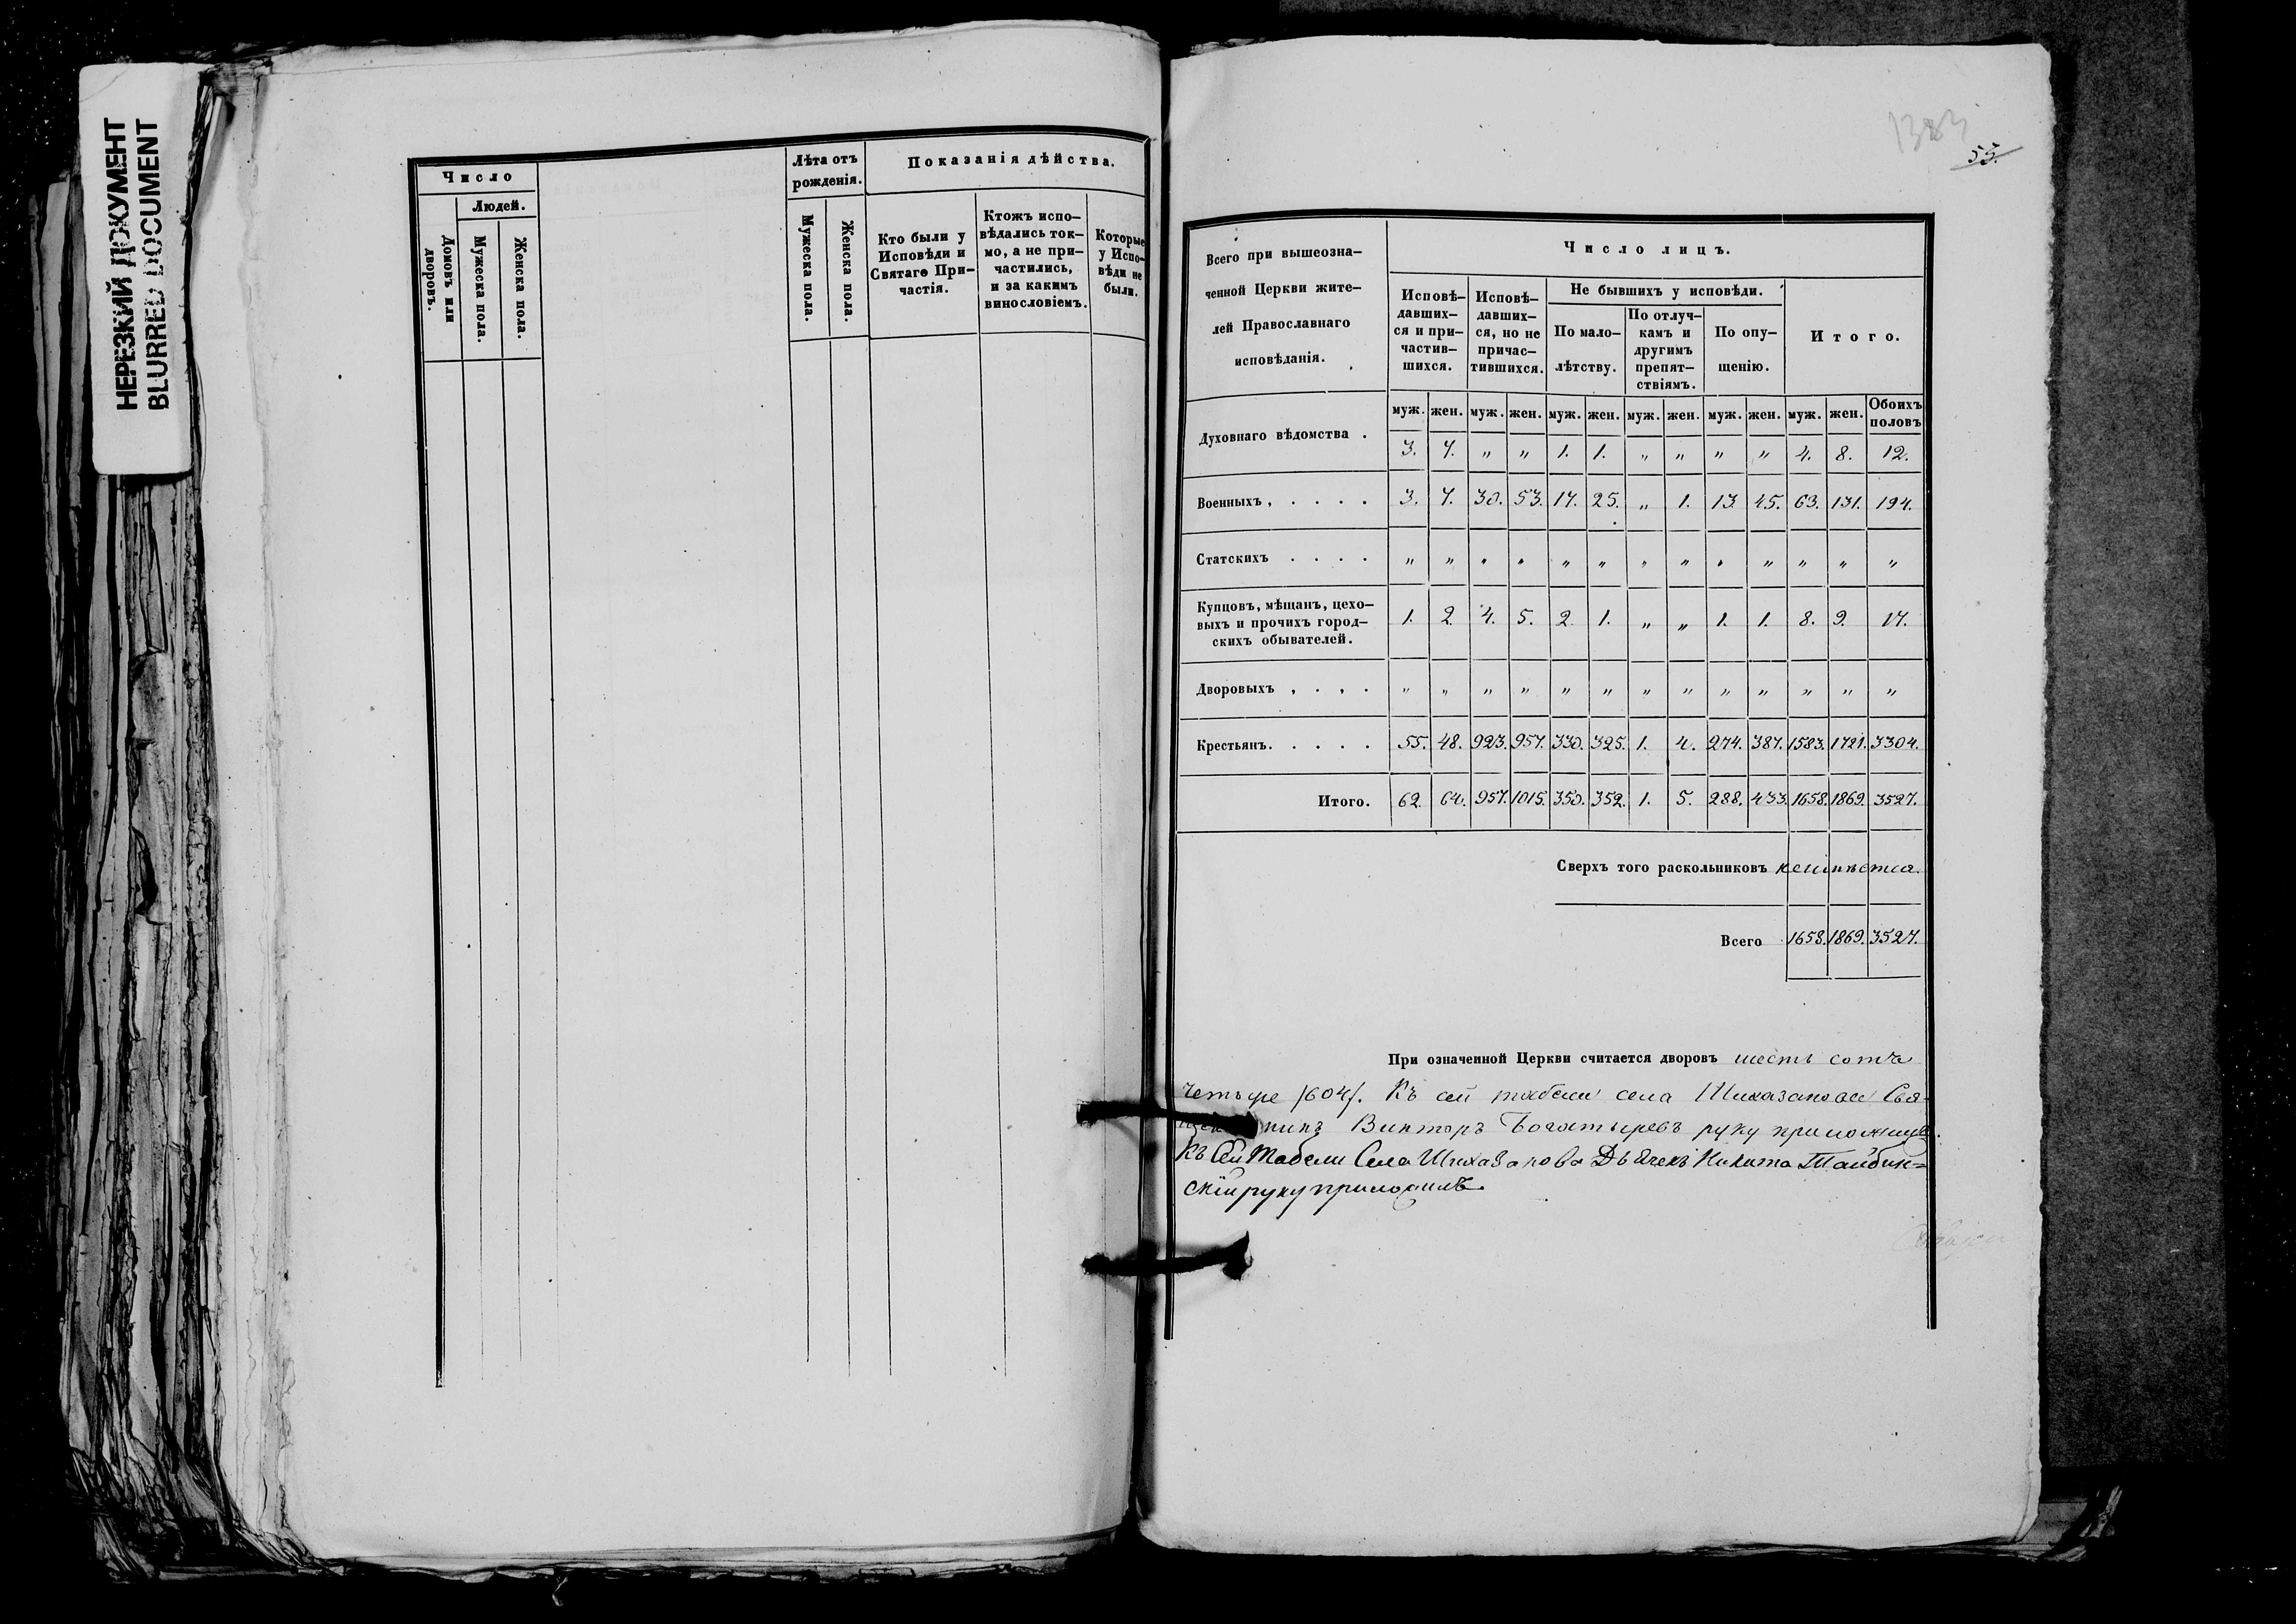 НЕРЕЗКИЙ ДОКУМЕНТ
BLURRED DOCUMENT
Число
Людей.
Домовъ или дворовъ.
Мужеска пола.
Женска пола.
Лѣта отъ
рожденія.
Мужеска пола.
Женска пола.
Показанія дѣйства.
Кто были у
Исповѣди и
Святаго При-
частія.
Ктожъ испо-
вѣдались ток-
мо, а не при-
частились,
и за какимъ
винословіемъ.
Которые
у Испо-
вѣди не
были.
53.
Всего при вышеозна-
ченной Церкви жите-
лей Православнаго
исповѣданія.
Число лицъ.
Исповѣ-
давших-
ся и при-
частив-
шихся.
Исповѣ-
давших-
ся, но не
причас-
тившихся.
Не бывшихъ у исповѣди.
По мало-
лѣтству.
По отлуч-
камъ и
другимъ
препят-
ствіямъ.
По опу-
щенію.
Итого.
муж. жен. муж. жен. муж. жен. муж. жен. муж. жен. муж. жен. Обоихъ половъ
Духовнаго вѣдомства . 3. 7. " " 1. 1. " " " " 4. 8. 12.
Военныхъ , . . . . 3. 7. 30. 53. 17. 25. " 1. 13. 45. 63. 131. 194.
Статскихъ . . . . " " " " " " " " " " " " "
Купцовъ, мѣщанъ, цехо-
выхъ и прочихъ город-
скихъ обывателей. 1. 2. 4. 5. 2. 1. " " 1. 1. 8. 9. 17.
Дворовыхъ , . , . " " " " " " " " " " " " "
Крестьянъ. . . . . 55. 48. 923. 957. 330. 325. 1. 4. 274. 387. 1583. 1721. 3304.
Итого. 62. 64. 957. 1015. 350. 352. 1. 5. 288. 433. 1658. 1869. 3527.
Сверхъ того раскольниковъ неимѣется.
Всего 1658. 1869. 3527.
При означенной Церкви считается дворовъ шесть сотъ
четыре /604/. Къ сей табели села Шихазанова Свя-
никъ Викторъ Богатыревъ руку приложилъ.
Къ Сей Табели Села Шихазанова Дьячекъ Никита Тайбин=
скій руку приложилъ.